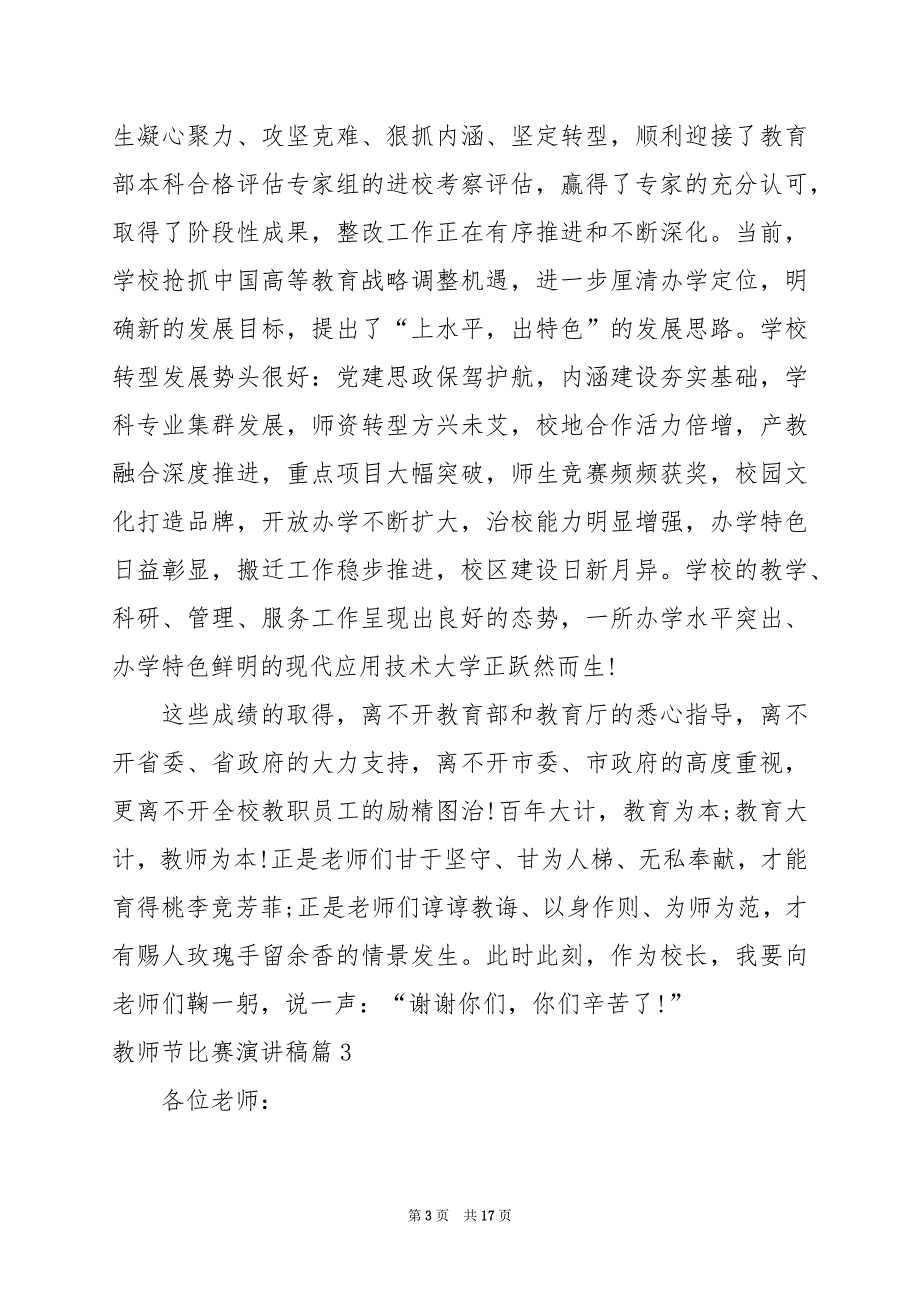 生凝心聚力、攻坚克难、狠抓内涵、坚定转型，顺利迎接了教育
部本科合格评估专家组的进校考察评估，赢得了专家的充分认可，
取得了阶段性成果，整改工作正在有序推进和不断深化。当前，
学校抢抓中国高等教育战略调整机遇，进一步厘清办学定位，明
确新的发展目标，提出了“上水平，出特色”的发展思路。学校
转型发展势头很好：党建思政保驾护航，内涵建设夯实基础，学
科专业集群发展，师资转型方兴未艾，校地合作活力倍增，产教
融合深度推进，重点项目大幅突破，师生竞赛频频获奖，校园文
化打造品牌，开放办学不断扩大，治校能力明显增强，办学特色
日益彰显，搬迁工作稳步推进，校区建设日新月异。学校的教学、
科研、管理、服务工作呈现出良好的态势，一所办学水平突出、
办学特色鲜明的现代应用技术大学正跃然而生!
这些成绩的取得，离不开教育部和教育厅的悉心指导，离不
开省委、省政府的大力支持，离不开市委、市政府的高度重视，
更离不开全校教职员工的励精图治!百年大计，教育为本;教育大
计，教师为本!正是老师们甘于坚守、甘为人梯、无私奉献，才能
育得桃李竞芳菲;正是老师们谆谆教诲、以身作则、为师为范，才
有赐人玫瑰手留余香的情景发生。此时此刻，作为校长，我要向
老师们鞠一躬，说一声：“谢谢你们，你们辛苦了!”
教师节比赛演讲稿篇 3
各位老师：
第 3 页 共 17 页